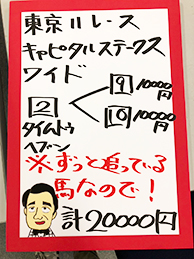 東京11レース
キャピタルステークス
ワイド
2
9 10000円
10 10000円
タイムトゥ
ヘブン
※ずっと追っている
馬なので!
計20000円